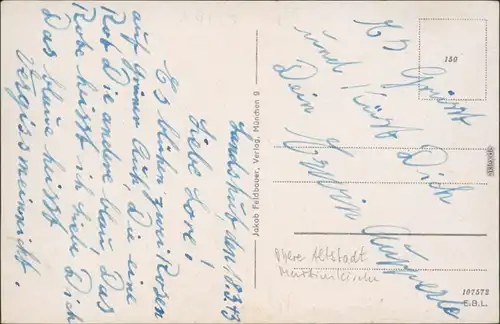 Landshut den 18.3.43
Liebe Lore!
Es blüen zwei Rosen
auf grüner Au, Die eine
Rot Die andere blau Das
Rote heisst ich liebe Dich
Das blaue heisst
Vergissmeinnicht.
Es grüsst
und Küsst Dich
Dein
Jakob Feldbauer, Verlag, München 9
150
Obere Altstadt
Martinskirche
107572
E.B.L.